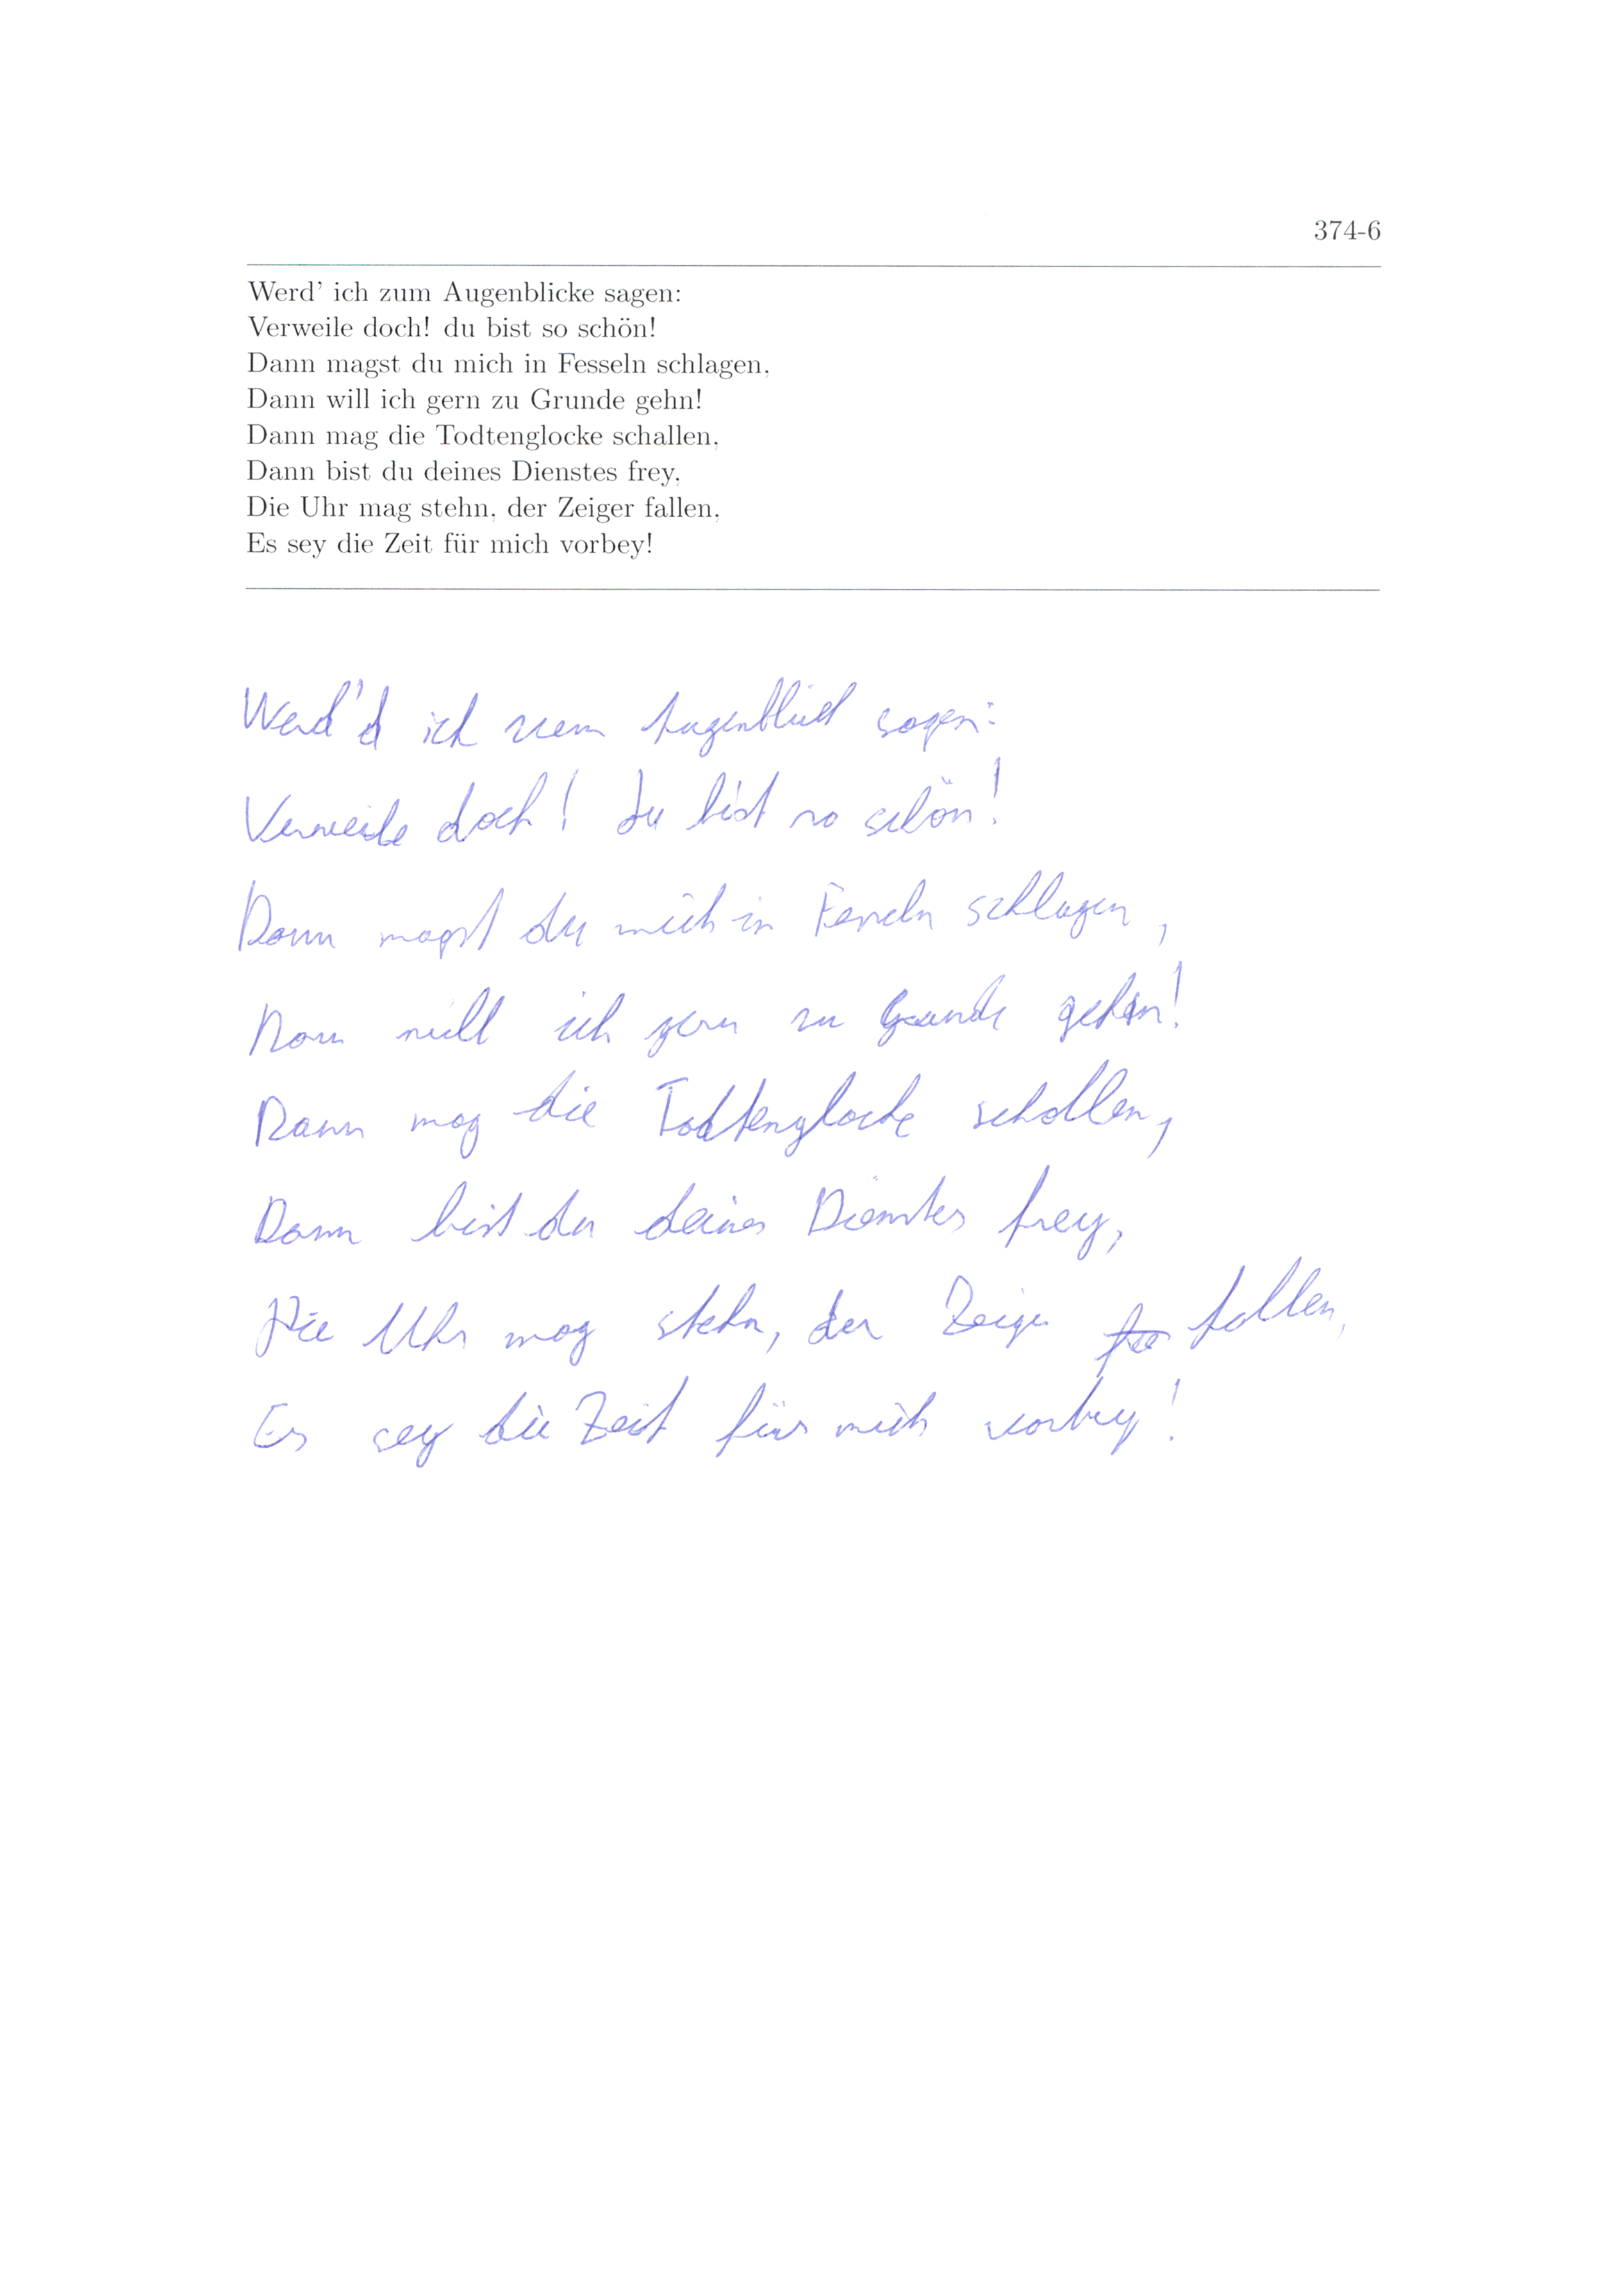 374-6
Werd' ich zum Augenblicke sagen:
Verweile doch! du bist so schön!
Dann magst du mich in Fesseln schlagen,
Dann will ich gern zu Grunde gehn!
Dann mag die Todtenglocke schallen,
Dann bist du deines Dienstes frey,
Die Uhr mag stehn, der Zeiger fallen,
Es sey die Zeit für mich vorbey!
Werd'd ich zum Augenblick sagen:
Verweile doch! du bist so schön!
Dann magst du mich in Fesseln schlagen,
Dann will ich gern zu Grunde gehn!
Dann mag die Todtenglocke schallen,
Dann bist du deines Dienstes frey,
Die Uhr mag stehn, der Zeiger fallen,
Es sey die Zeit für mich vorbey!